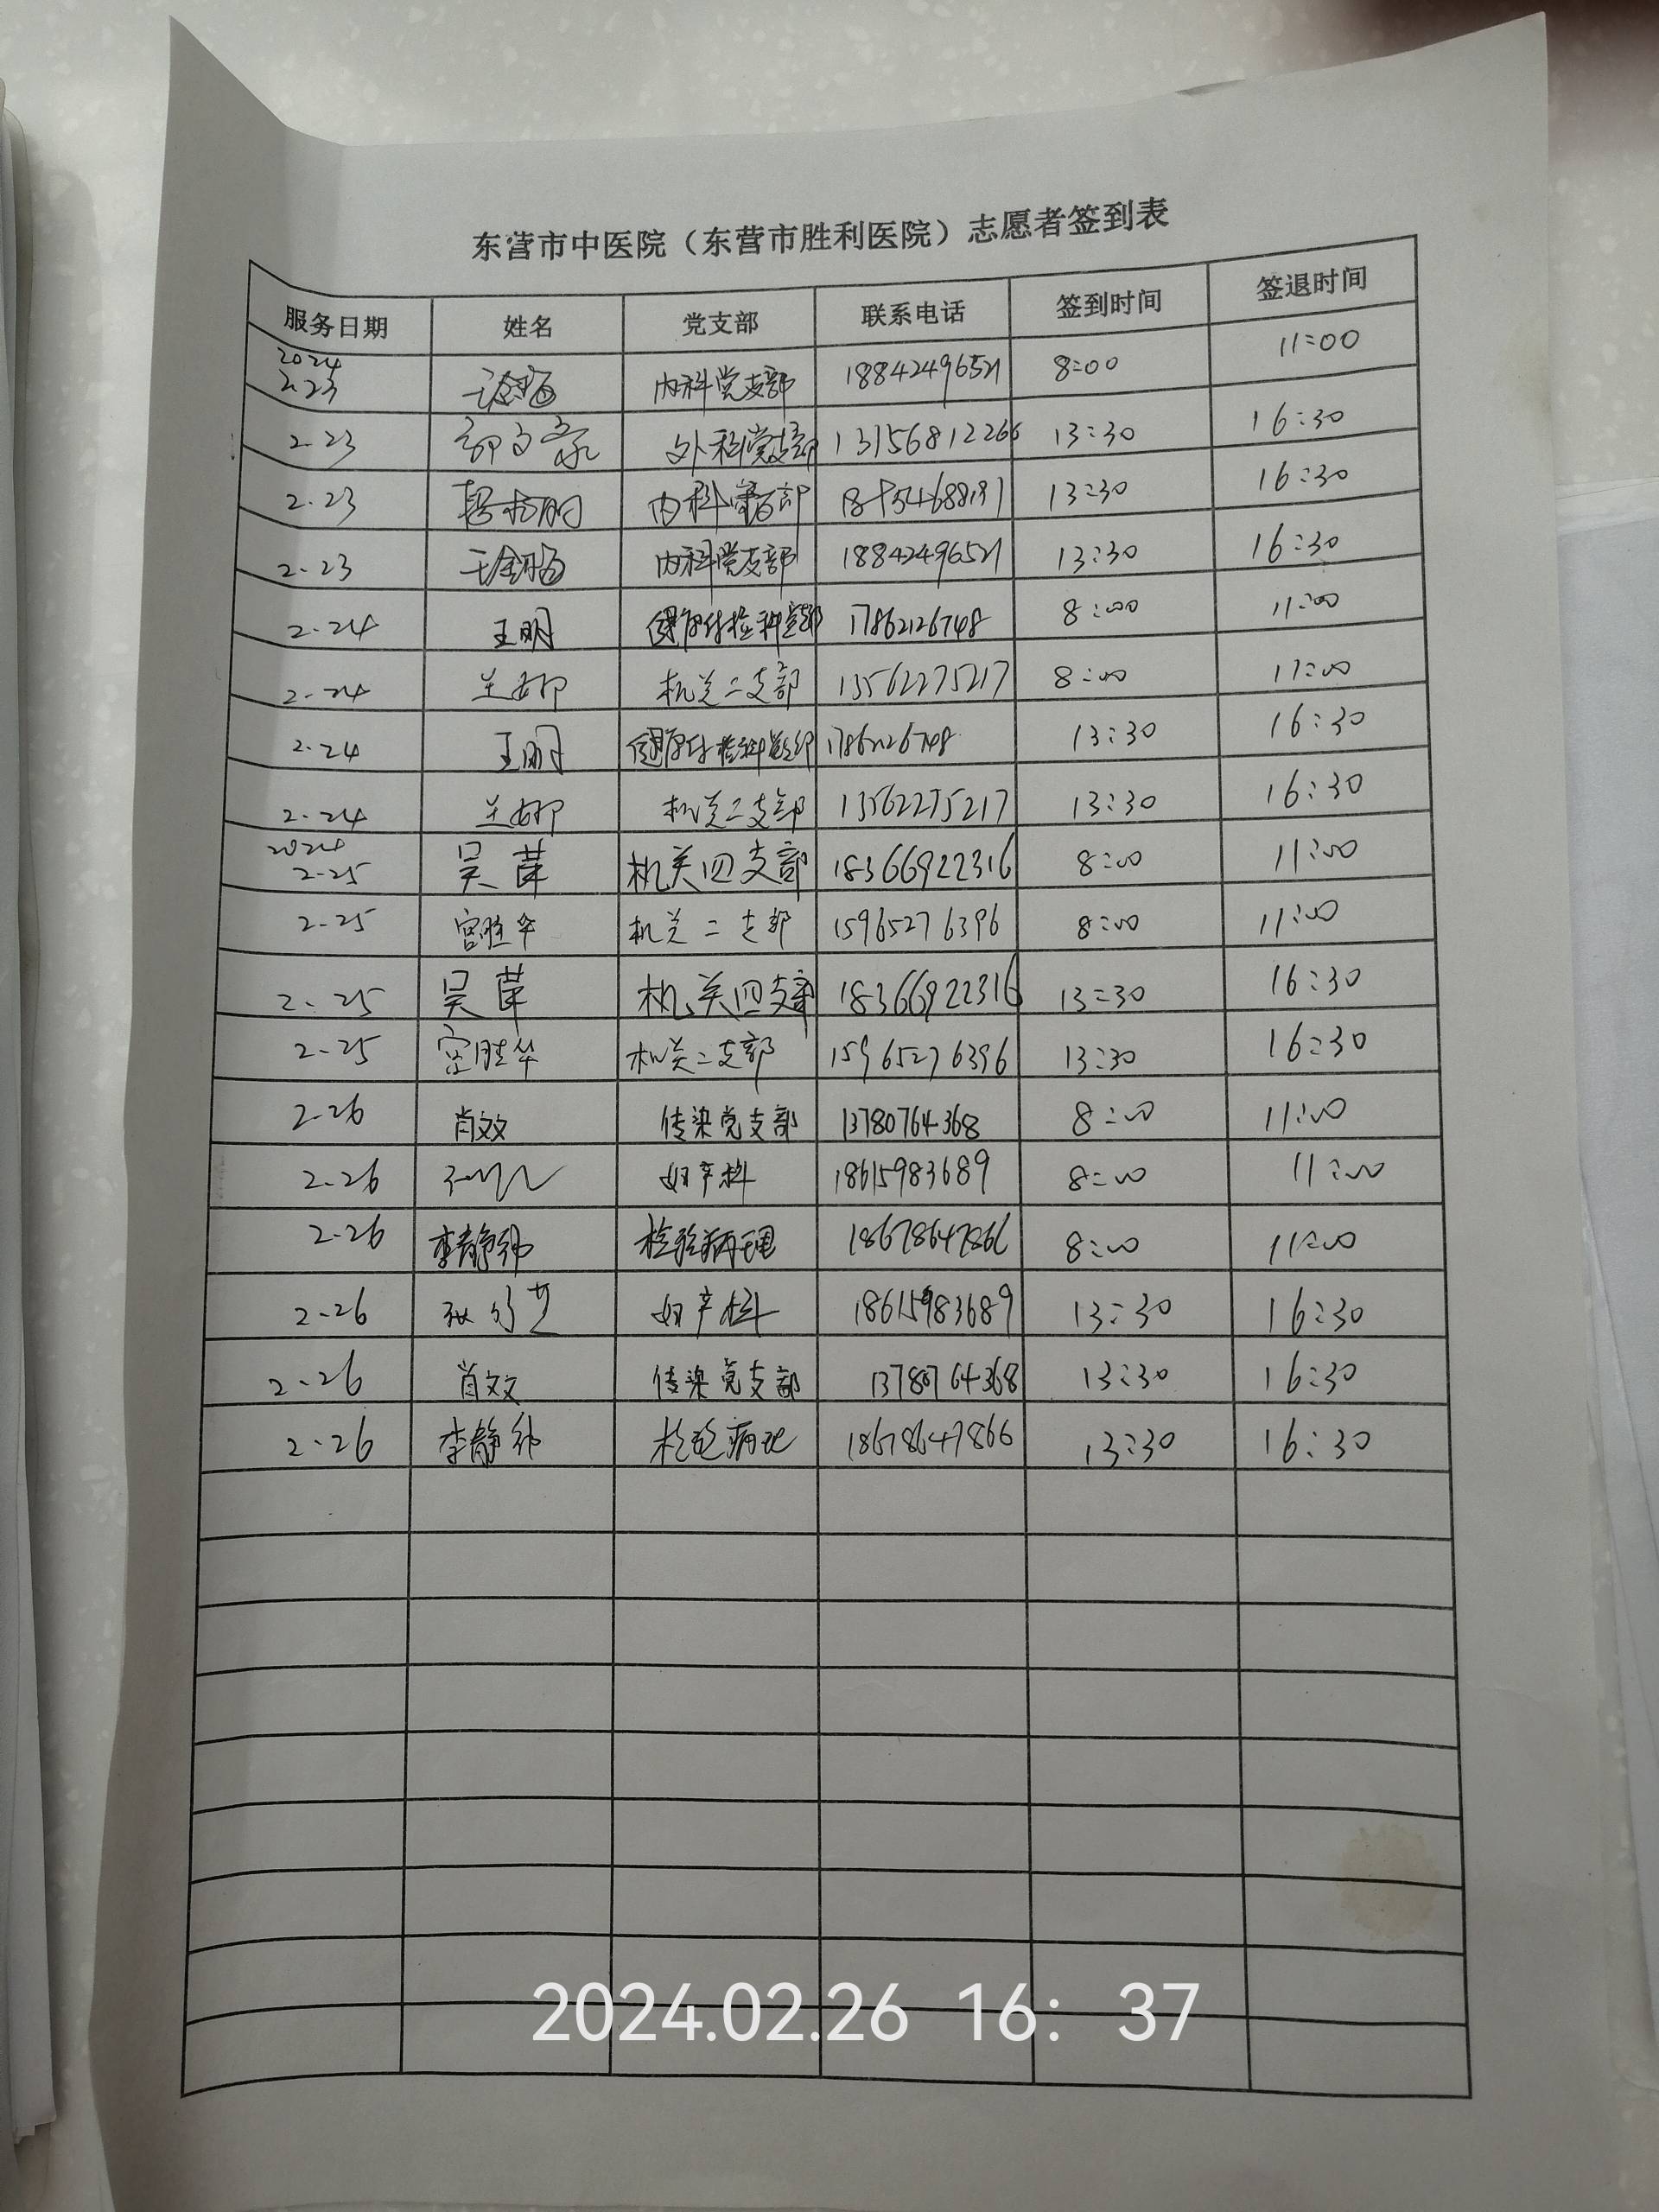 东营市中医院（东营市胜利医院）志愿者签到表
服务日期 姓名 党支部 联系电话 签到时间 签退时间
2024
2.23 内科党支部 18842496521 8:00 11:00
2.23 外科党支部 13156812266 13:30 16:30
2.23 内科 13:30 16:30
2.23 内科党支部 18842496521 13:30 16:30
2.24 王明 健康体检科党支部 17862126748 8:00 11:00
2.24 兰娜 机关二支部 13562275217 8:00 11:00
2.24 王明 健康体检科党支部 17862126748 13:30 16:30
2.24 兰娜 机关二支部 13562275217 13:30 16:30
2024
2.25 吴苹 机关四支部 18366922316 8:00 11:00
2.25 宫胜华 机关二支部 15965276396 8:00 11:00
2.25 吴苹 机关四支部 18366922316 13:30 16:30
2.25 宫胜华 机关二支部 15965276396 13:30 16:30
2.26 肖效 传染党支部 13780764368 8:00 11:00
2.26 妇产科 18615983689 8:00 11:00
2.26 李静 检验病理 18678647866 8:00 11:00
2.26 妇产科 18615983689 13:30 16:30
2.26 肖效 传染党支部 13780764368 13:30 16:30
2.26 李静 检验病理 18678647866 13:30 16:30
2024.02.26 16：37